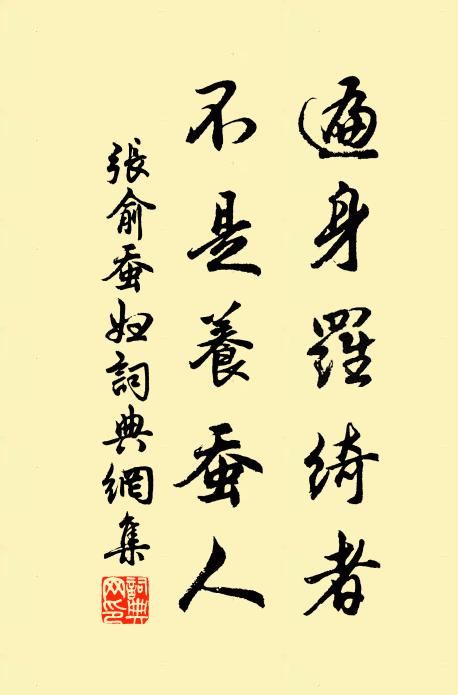 遍身羅綺者
不是養蚕人
張俞蚕妇詞典網集
詞典网印